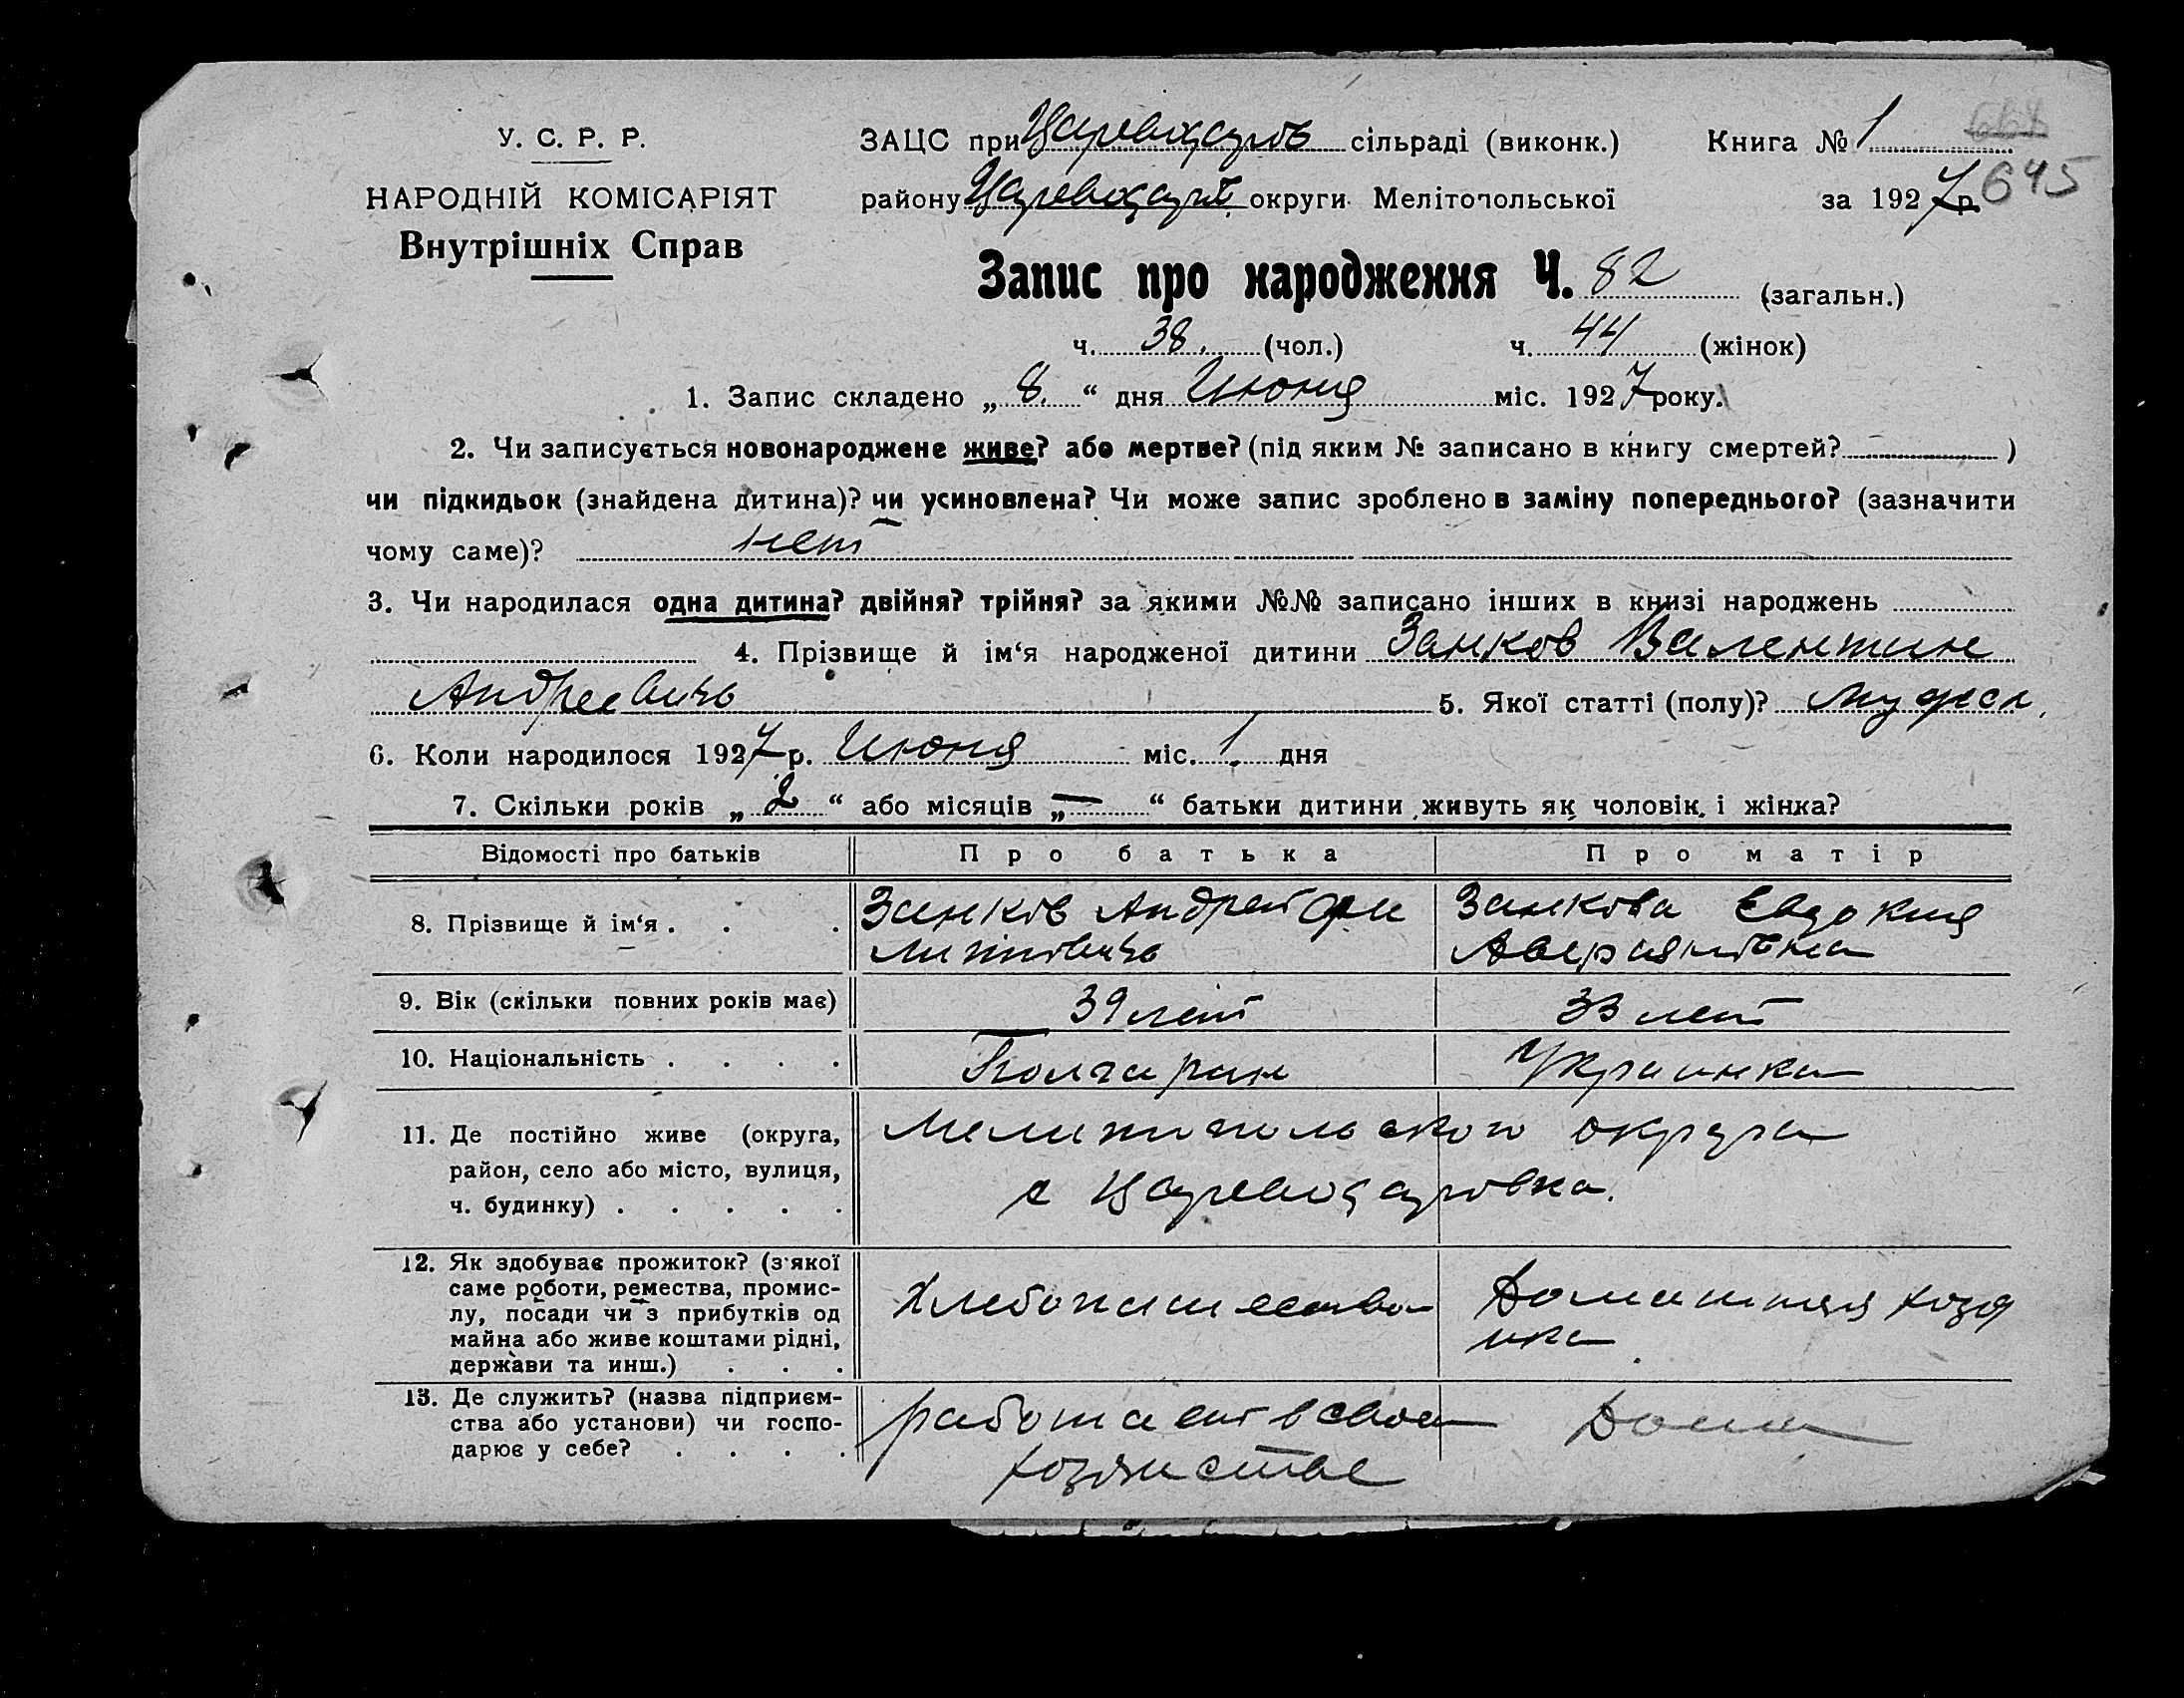 У. С. Р. Р.
НАРОДНІЙ КОМІСАРІЯТ
Внутрішніх Справ
ЗАЦС при Царевоцаров сільраді (виконк.) Книга № 1
району округи Мелітопольської за 1927 р. 645
Запис про народження Ч. 82 (загальн.)
ч. 38. (чол.) ч. 44 (жінок)
1. Запис складено „ 8. “ дня Июня міс. 1927 року.
2. Чи записується новонароджене живе? або мертве? (під яким № записано в книгу смертей? )
чи підкидьок (знайдена дитина)? чи усиновлена? Чи може запис зроблено в заміну попереднього? (зазначити
чому саме)? нет
3. Чи народилася одна дитина? двійня? трійня? за якими №№ записано інших в книзі народжень
4. Прізвище й ім‘я народженої дитини Занков Валентин
Андреевичь 5. Якої статті (полу)? мужск.
6. Коли народилося 1927 р. Июня міс. 1 дня
7. Скільки років „ 2 “ або місяців „ — “ батьки дитини живуть як чоловік і жінка?
Відомості про батьків Про батька Про матір
8. Прізвище й ім‘я . . . Занков Андрей Фи Занкова Євдокия
липовичь Аверияновна
9. Вік (скільки повних років має) 39 лет 33 лет
10. Національність . . . . Болгарин Украинка
11. Де постійно живе (округа, Мелитопольского округа
район, село або місто, вулиця, с
ч. будинку) . . . . .
12. Як здобуває прожиток? (з‘якої
саме роботи, ремества, промис- Хлебопашество Домашняя хозя
лу, посади чи з прибутків од йка
майна або живе коштами рідні,
держави та инш.) . . .
13. Де служить? (назва підприєм- работает в свое Дома
ства або установи) чи госпо-
дарює у себе? . . . . хозяистве